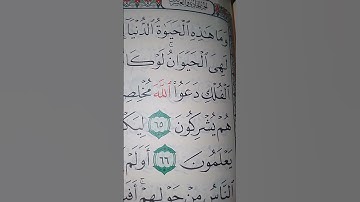 وَمَا هَٰذِهِ ٱلْحَيَوٰةُ ٱلدُّنْيَا
لَهِىَ ٱلْحَيَوَانُ ۚ لَوْ كَا
ٱلْفُلْكِ دَعَوُا۟ ٱللَّهَ مُخْلِصِ
هُمْ يُشْرِكُونَ ٦٥ لِيَكْ
يَعْلَمُونَ ٦٦ أَوَلَمْ
ٱلنَّاسُ مِنْ حَوْلِهِمْ ۚ أَفَبِ